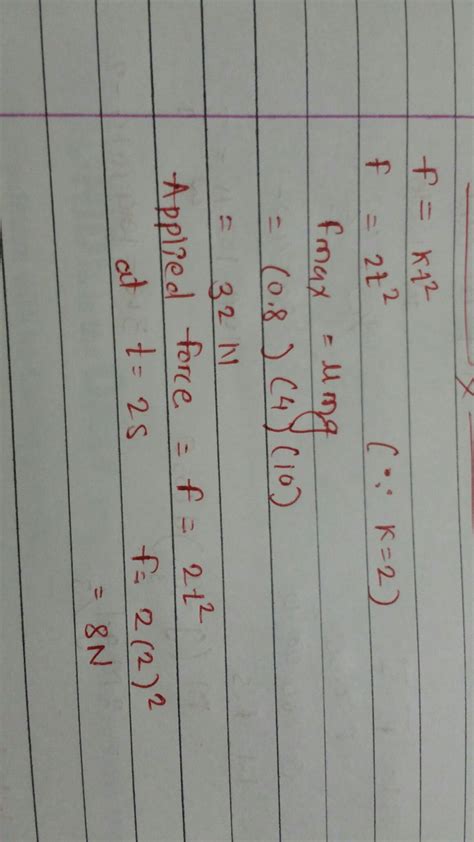 f = kt²
f = 2t² (∵ k=2)
fmax = μmg
= (0.8) (4) (10)
= 32 N
Applied force = f = 2t²
at t = 2s f = 2(2)²
= 8N